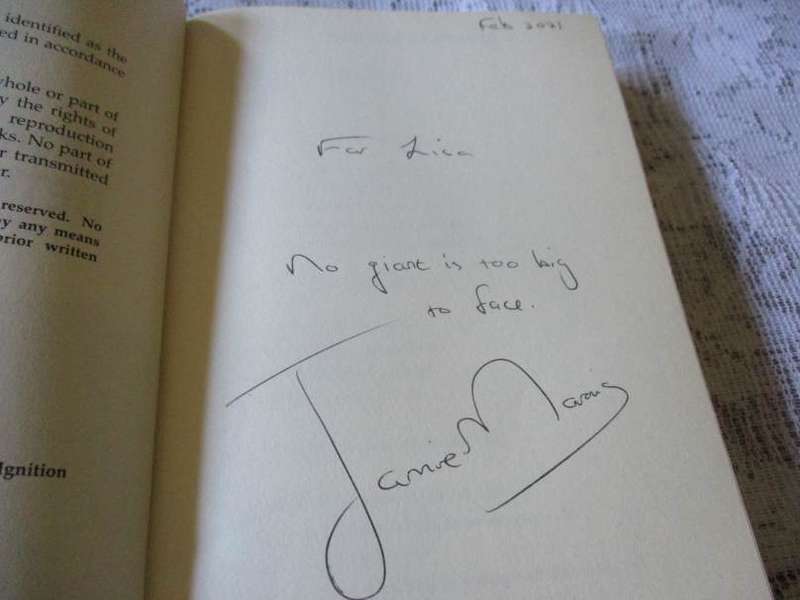 identified as the
ed in accordance
whole or part of
y the rights of
reproduction
ks. No part of
r transmitted
r.
reserved. No
by any means
prior written
Ignition
Feb 2021
For Lisa
No giant is too big
to face.
Jamie